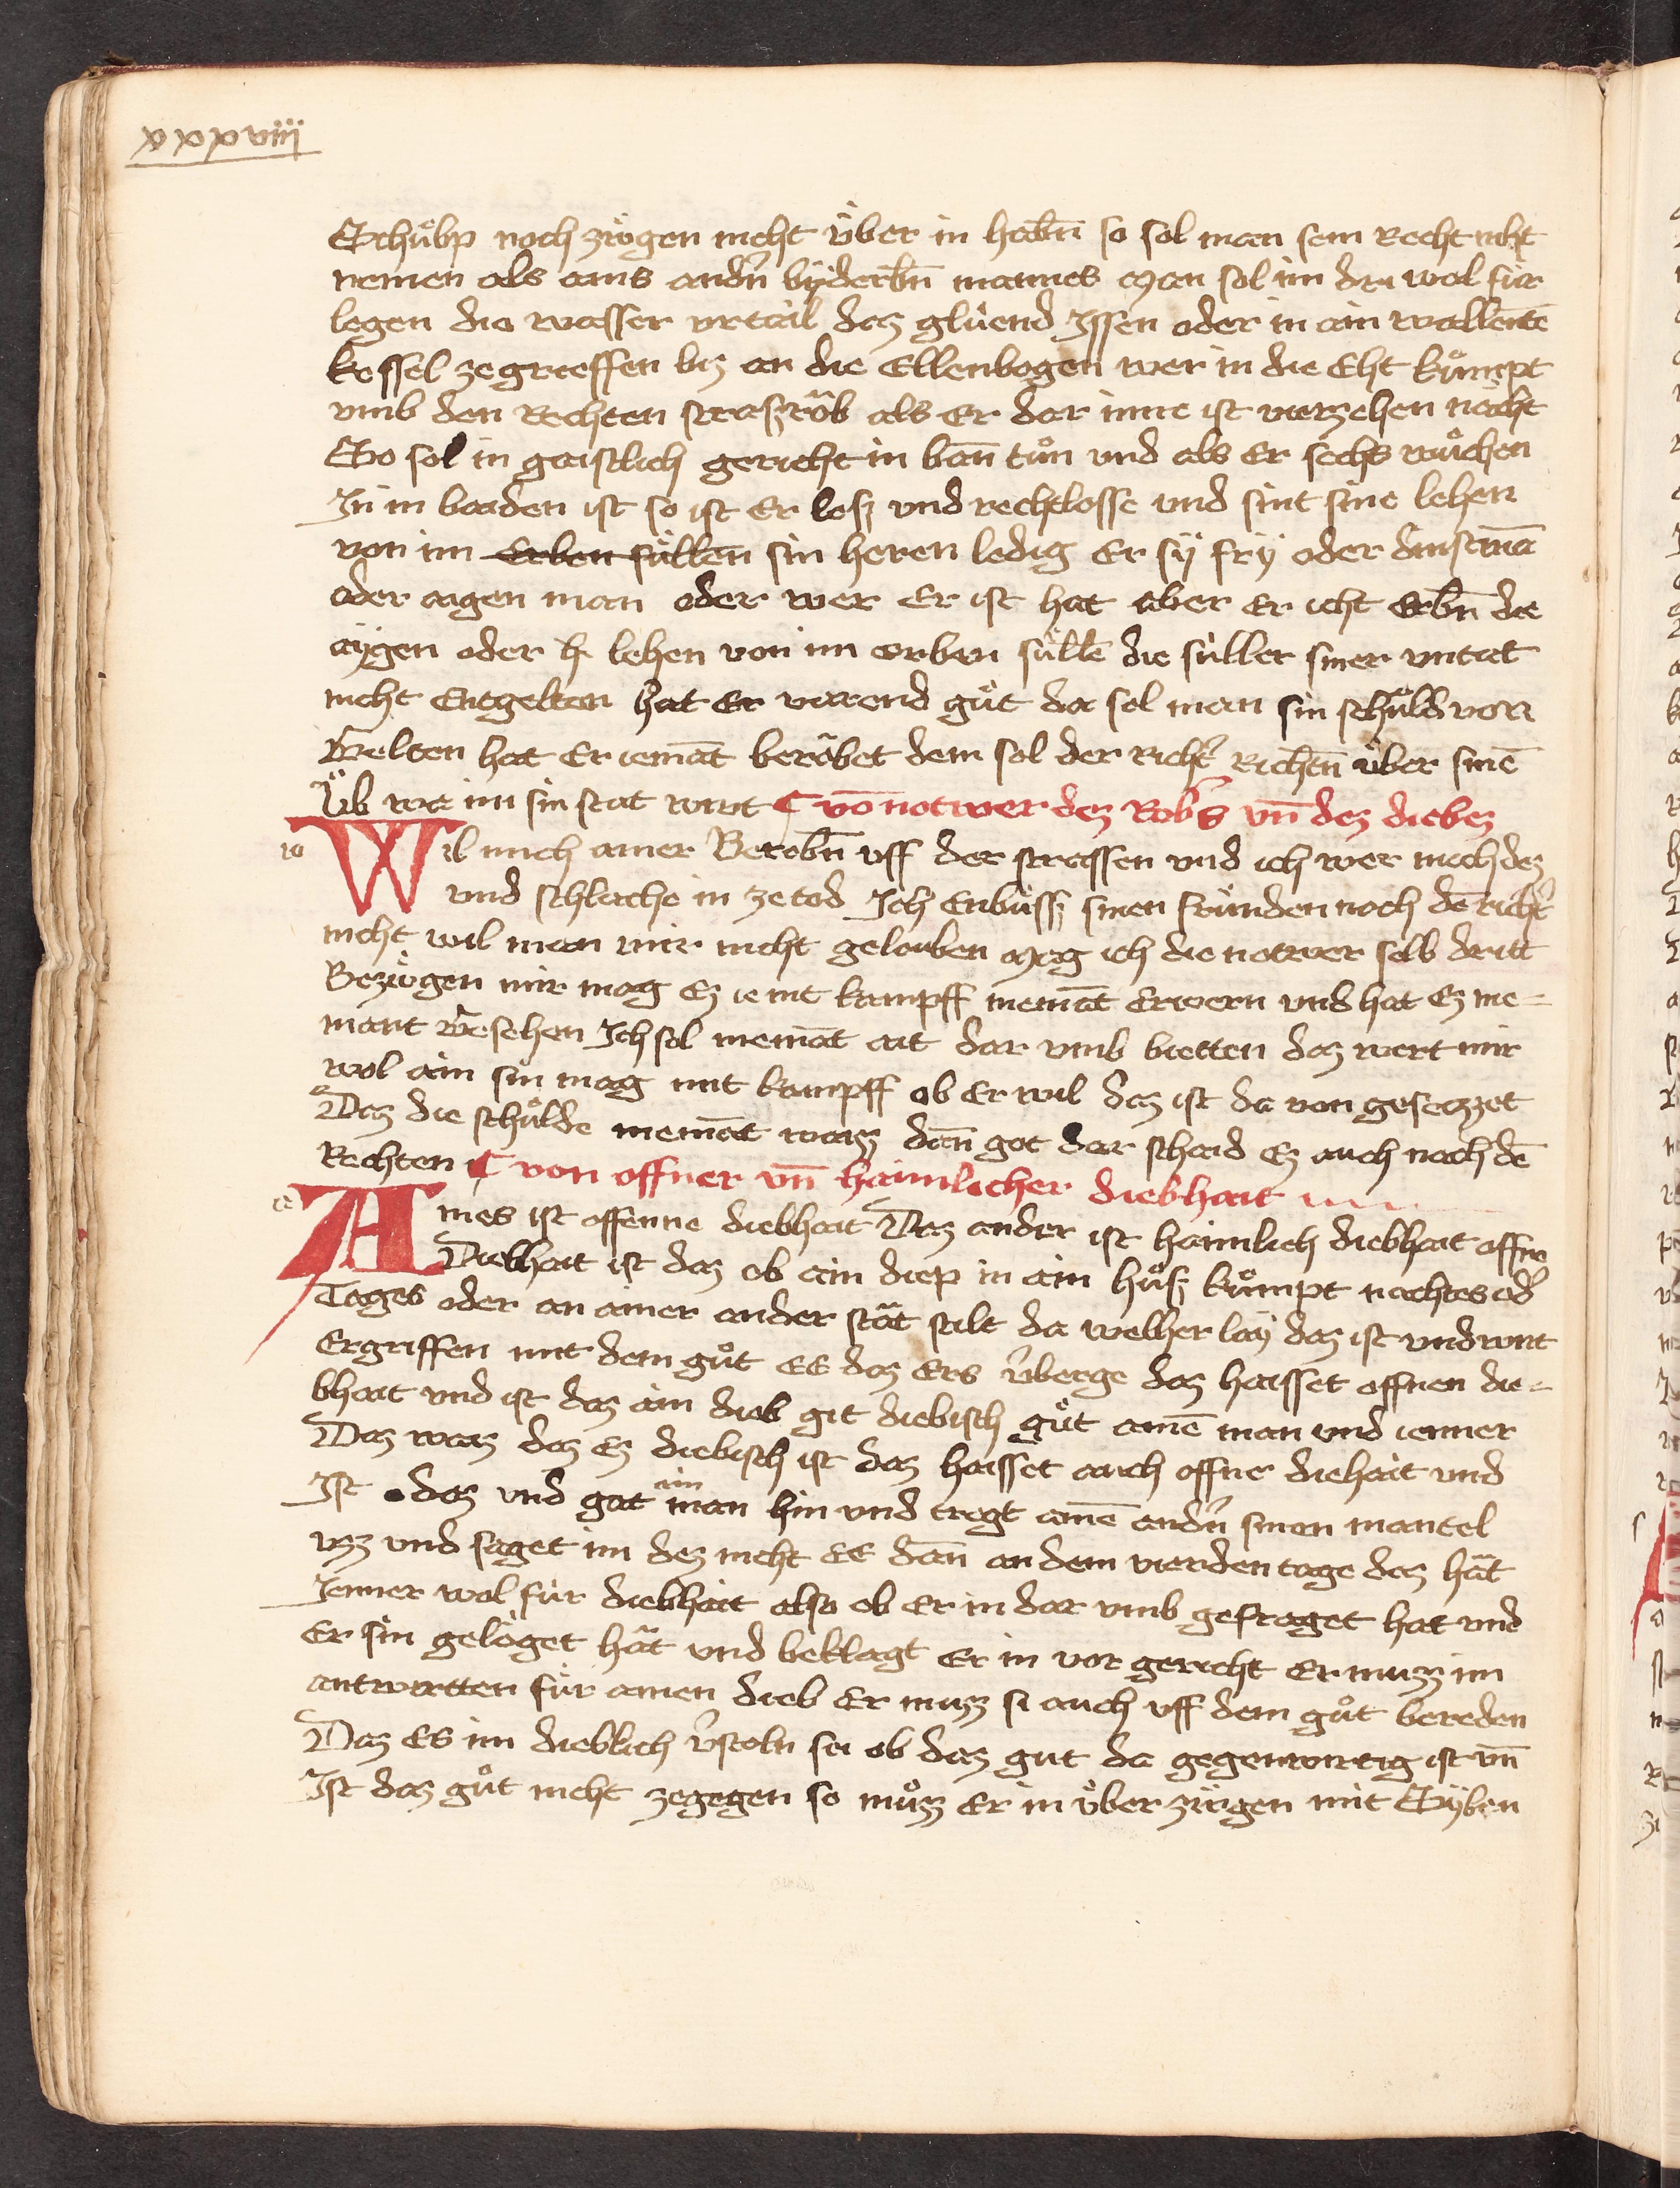 xxxviii
Schu̇bp noch zu̇gen nicht u̇ber in habn̄ so sol man sein Recht nicht
nemen als ains andn̄ byderbn̄ mannes Man sol im dru wol für
legen die wasser vrtail daz glu̇end Issen oder in ain wallentē
kessel zegrieffen biz an die Ellenbogen wer in die Eht ku̇mpt
vmb den Rechten straszrǒb als Er dar inne ist vierzehen nächt
So sol in gaistlich gericht in ban̄ tůn vnd als Er sechs wůchen
In in baiden ist so ist Er losz vnd rechtlosse vnd sint sine lehen
von im Erben süllen sin heren ledig Er sÿ frÿ oder dinstmā
oder aigen man oder wer Er ist hat aber Er icht Erbn̄ die
aÿgen oder lehen von im erben süllē die süllet siner vntat
nicht Entgelten hat Er varend gůt da sol man sin schuld von
Gelten hat Er iemāt berǒbet dem sol der Richt̾ Richtn̄ u̇ber sinē
Lib we im sin stat wirt ¶ vō notwer dez Robs̾ vn̄ dez diebez
w
Wil mich ainer Berobn̄ vff der strassen vnd ich wer mich dez
vnd schlache in ze tod Ich Enbüssz sinen fründen noch dē richt̾
nicht wil man mir nicht gelouben Mag ich die notwer selb dritt
Bezu̇gen mir mag Ez ie mit kampff niemāt Erwern vnd hat Ez nie=
mant Gesehen Ich sol niemāt ait dar vmb bietten daz wert mir
wol ain sin mag mit kampff ob Er wil daz ist da von gesetzzet
Daz die schulde niemāt waisz dan̄ got dar schaid Ez auch nach dē
Rechten ¶ von offner vn̄ haimlicher diebhait
a
Aines ist offenne diebhait Daz ander ist haimlich diebhait offne
Diebhait ist daz ob ain diep in ain hůsz ku̇mpt nachtes od̾
Tages oder an ainer ander stät stilt da welher laÿ daz ist vnd wirt
Ergriffen mit dem gůt EE daz Ers v̾berge daz haisset offnen die=
bhait vnd ist daz ain dieb git diebisch gůt ainē man vnd ienner
Daz waisz daz Ez diebisch ist daz haisset auch offne diehait vnd
Ist daz vnd gat ain man hin vnd tregt ainē andn̄ sinen mantel
vzz vnd saget im dez nicht EE dan̄ an dem vierden tage daz hät
Ienner wol für diebhait also ob Er in dar vmb gefraget hat vnd
Er sin gelöget hät vnd beklagt Er in vor gericht Er muzz im
antwurtten für ainen dieb Er muzz si auch vff dem gůt bereden
Daz Es im dieblich v̾stoln si ob daz gut da gegenwürtig ist vn̄
Ist daz gůt nicht zegegen so můzz Er in u̇ber zu̇gen mit Sÿben